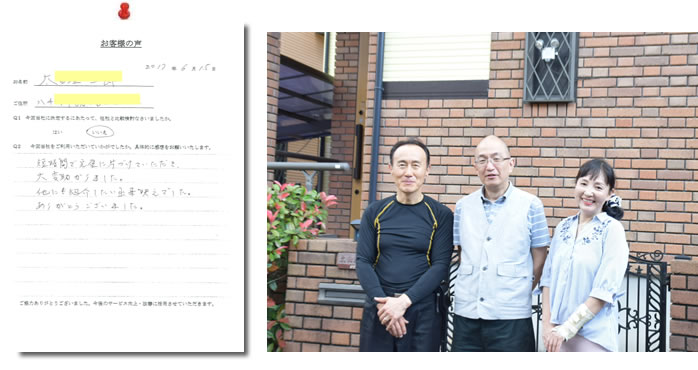 お客様の声
2017年 6月 15日
お名前
ご住所
Q1 今回当社に決定するにあたって、他社と比較検討なさいましたか。
はい いいえ
Q2 今回当社をご利用いただいていかがでしたか。具体的に感想をお願いいたします。
短時間で完璧に片づけていただき、
大変助かりました。
他にも紹介したい出来映えでした。
ありがとうございました。
ご協力ありがとうございました。今後のサービス向上・改善に活用させていただきます。